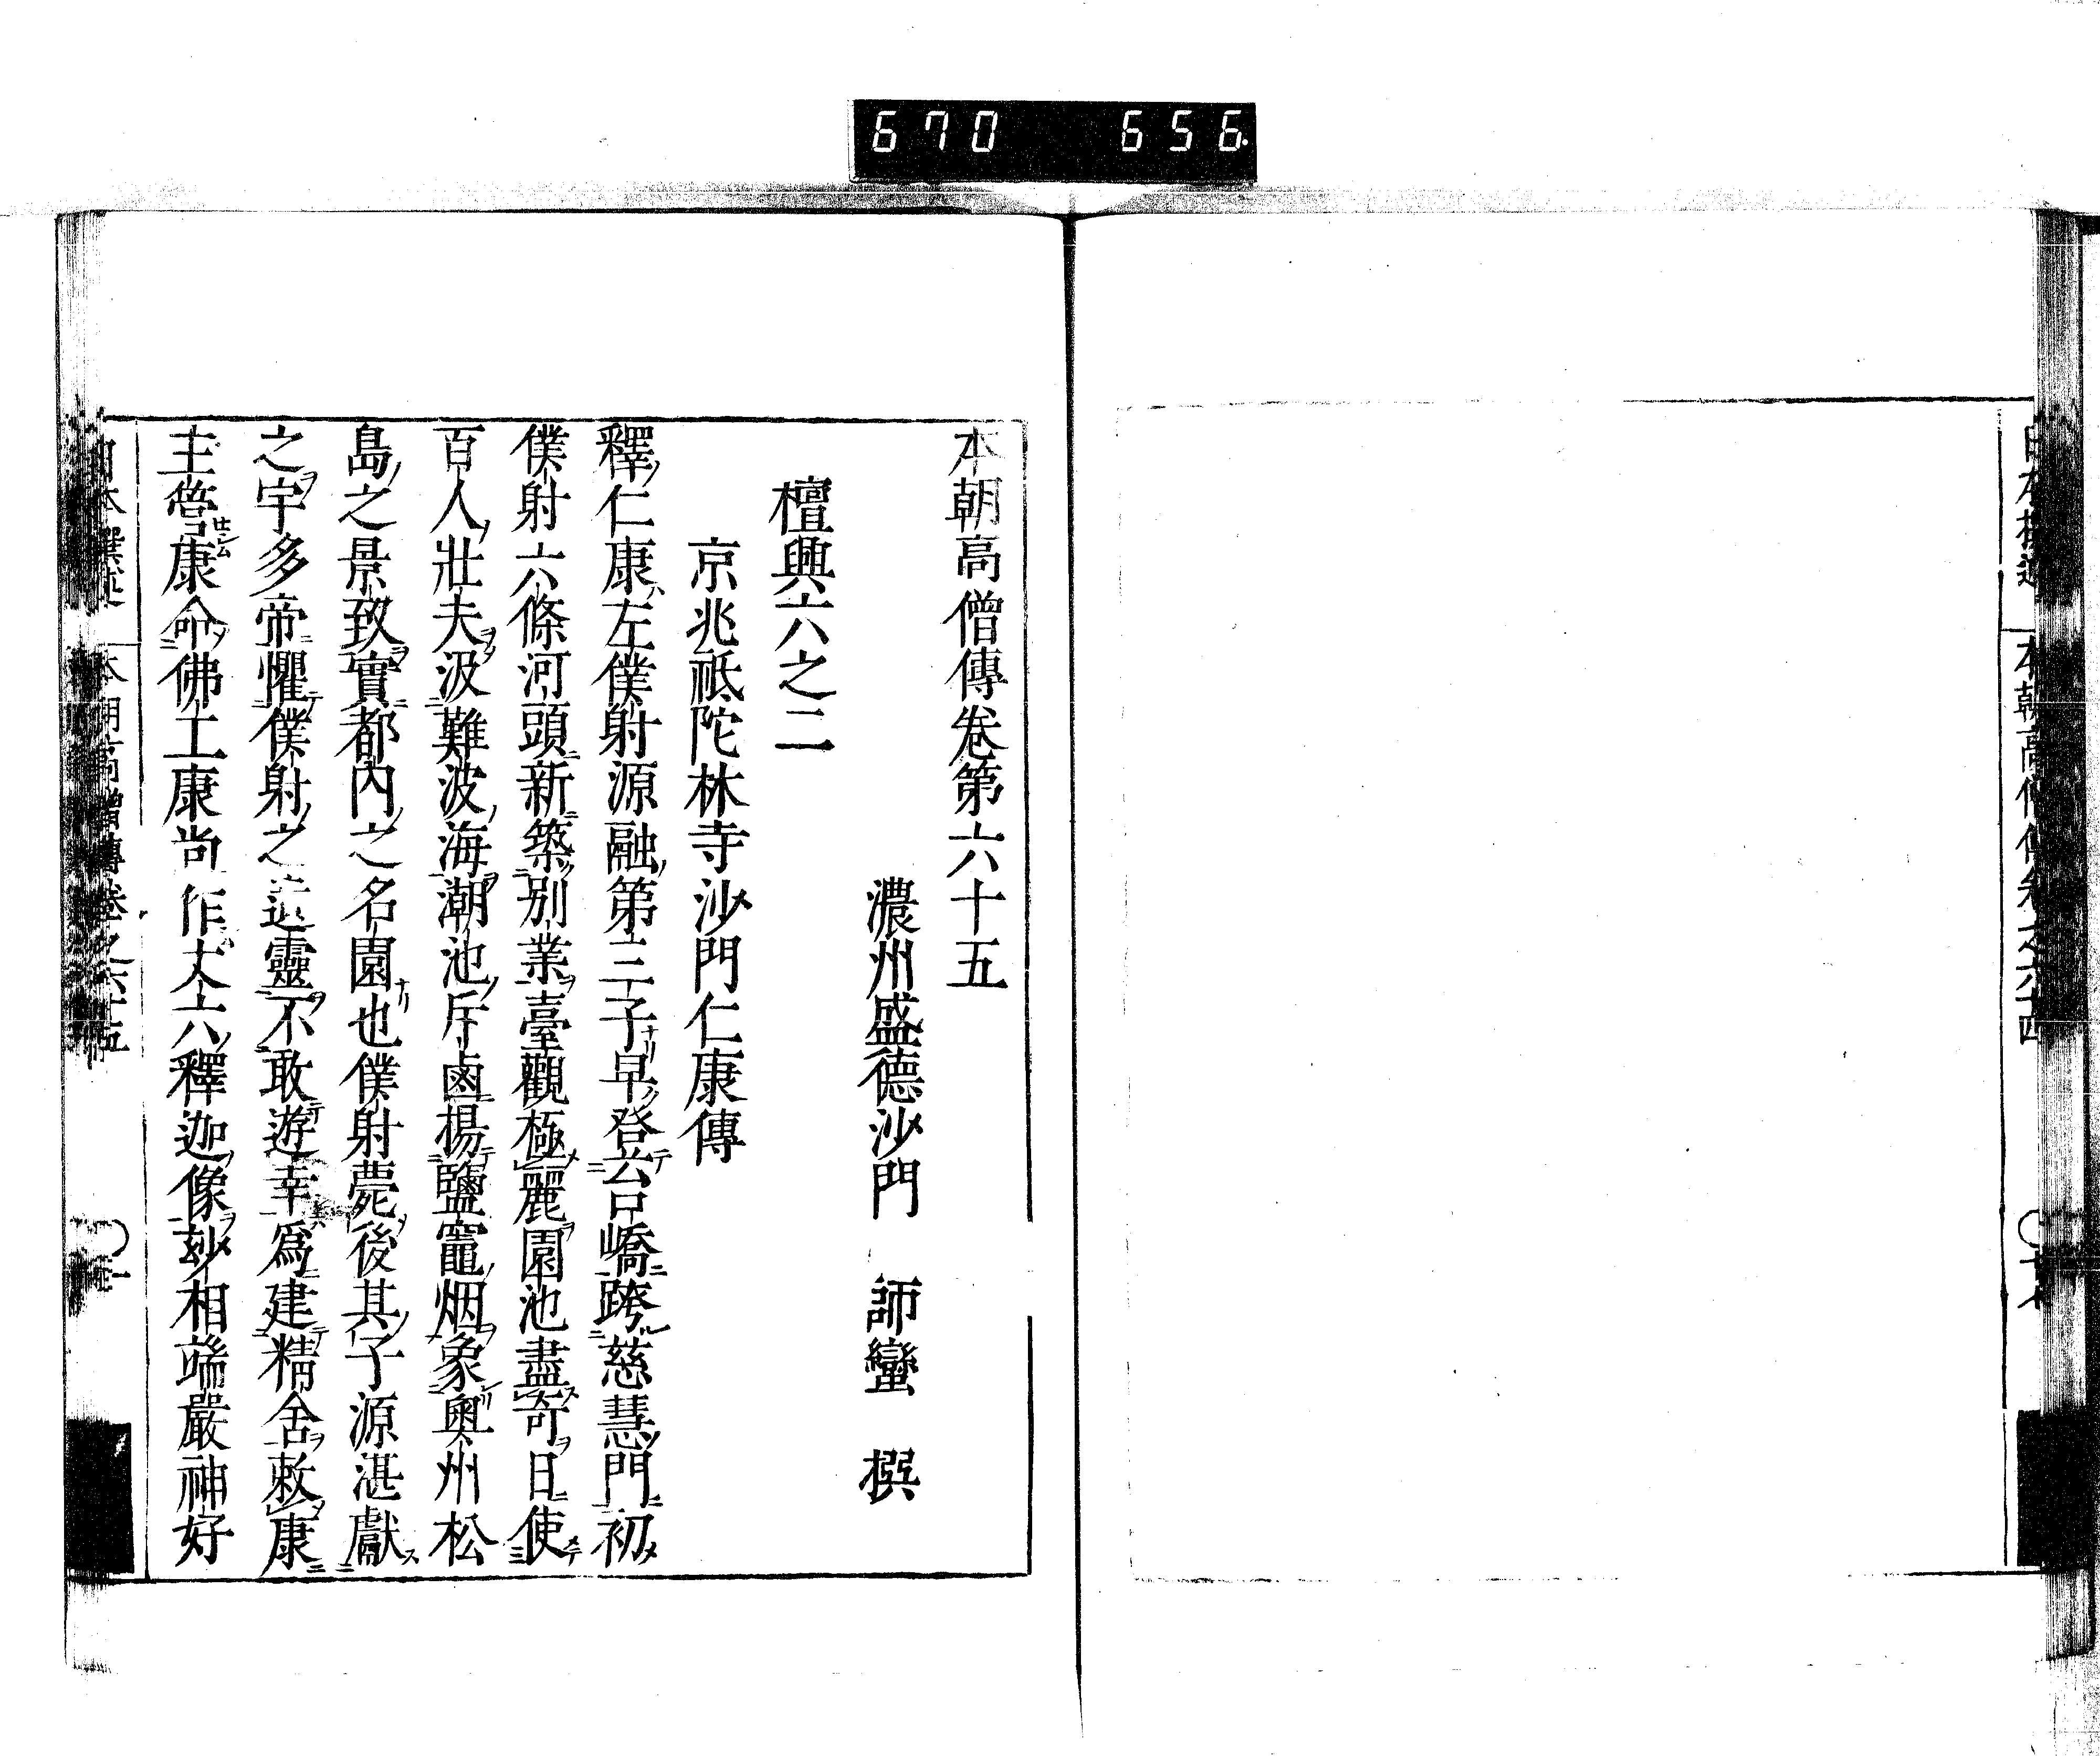 670 656
本朝高僧傳卷第六十五
濃州盛德沙門 師蠻 撰
檀興六之二
京兆祇陀林寺沙門仁康傳
釋仁康左僕射源融第三子早登台嶠跨慈慧門初
僕射六條河頭新築別業臺觀極麗園池盡奇日使
百人壯夫汲難波海潮池斥鹵揚鹽竈烟象奧州松
島之景致實都內之名園也僕射薨後其子源湛獻
之宇多帝懼僕射之遊靈不敢遊幸爲建精舍敕康
主營康命佛工康尚作丈六釋迦像妙相端嚴神好
日本撰述 本朝高僧傳卷之六十五